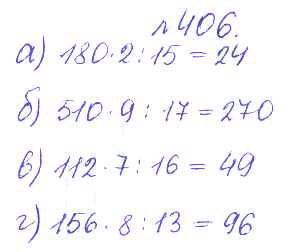 №406.
а) 180·2:15=24
б) 510·9:17=270
в) 112·7:16=49
г) 156·8:13=96